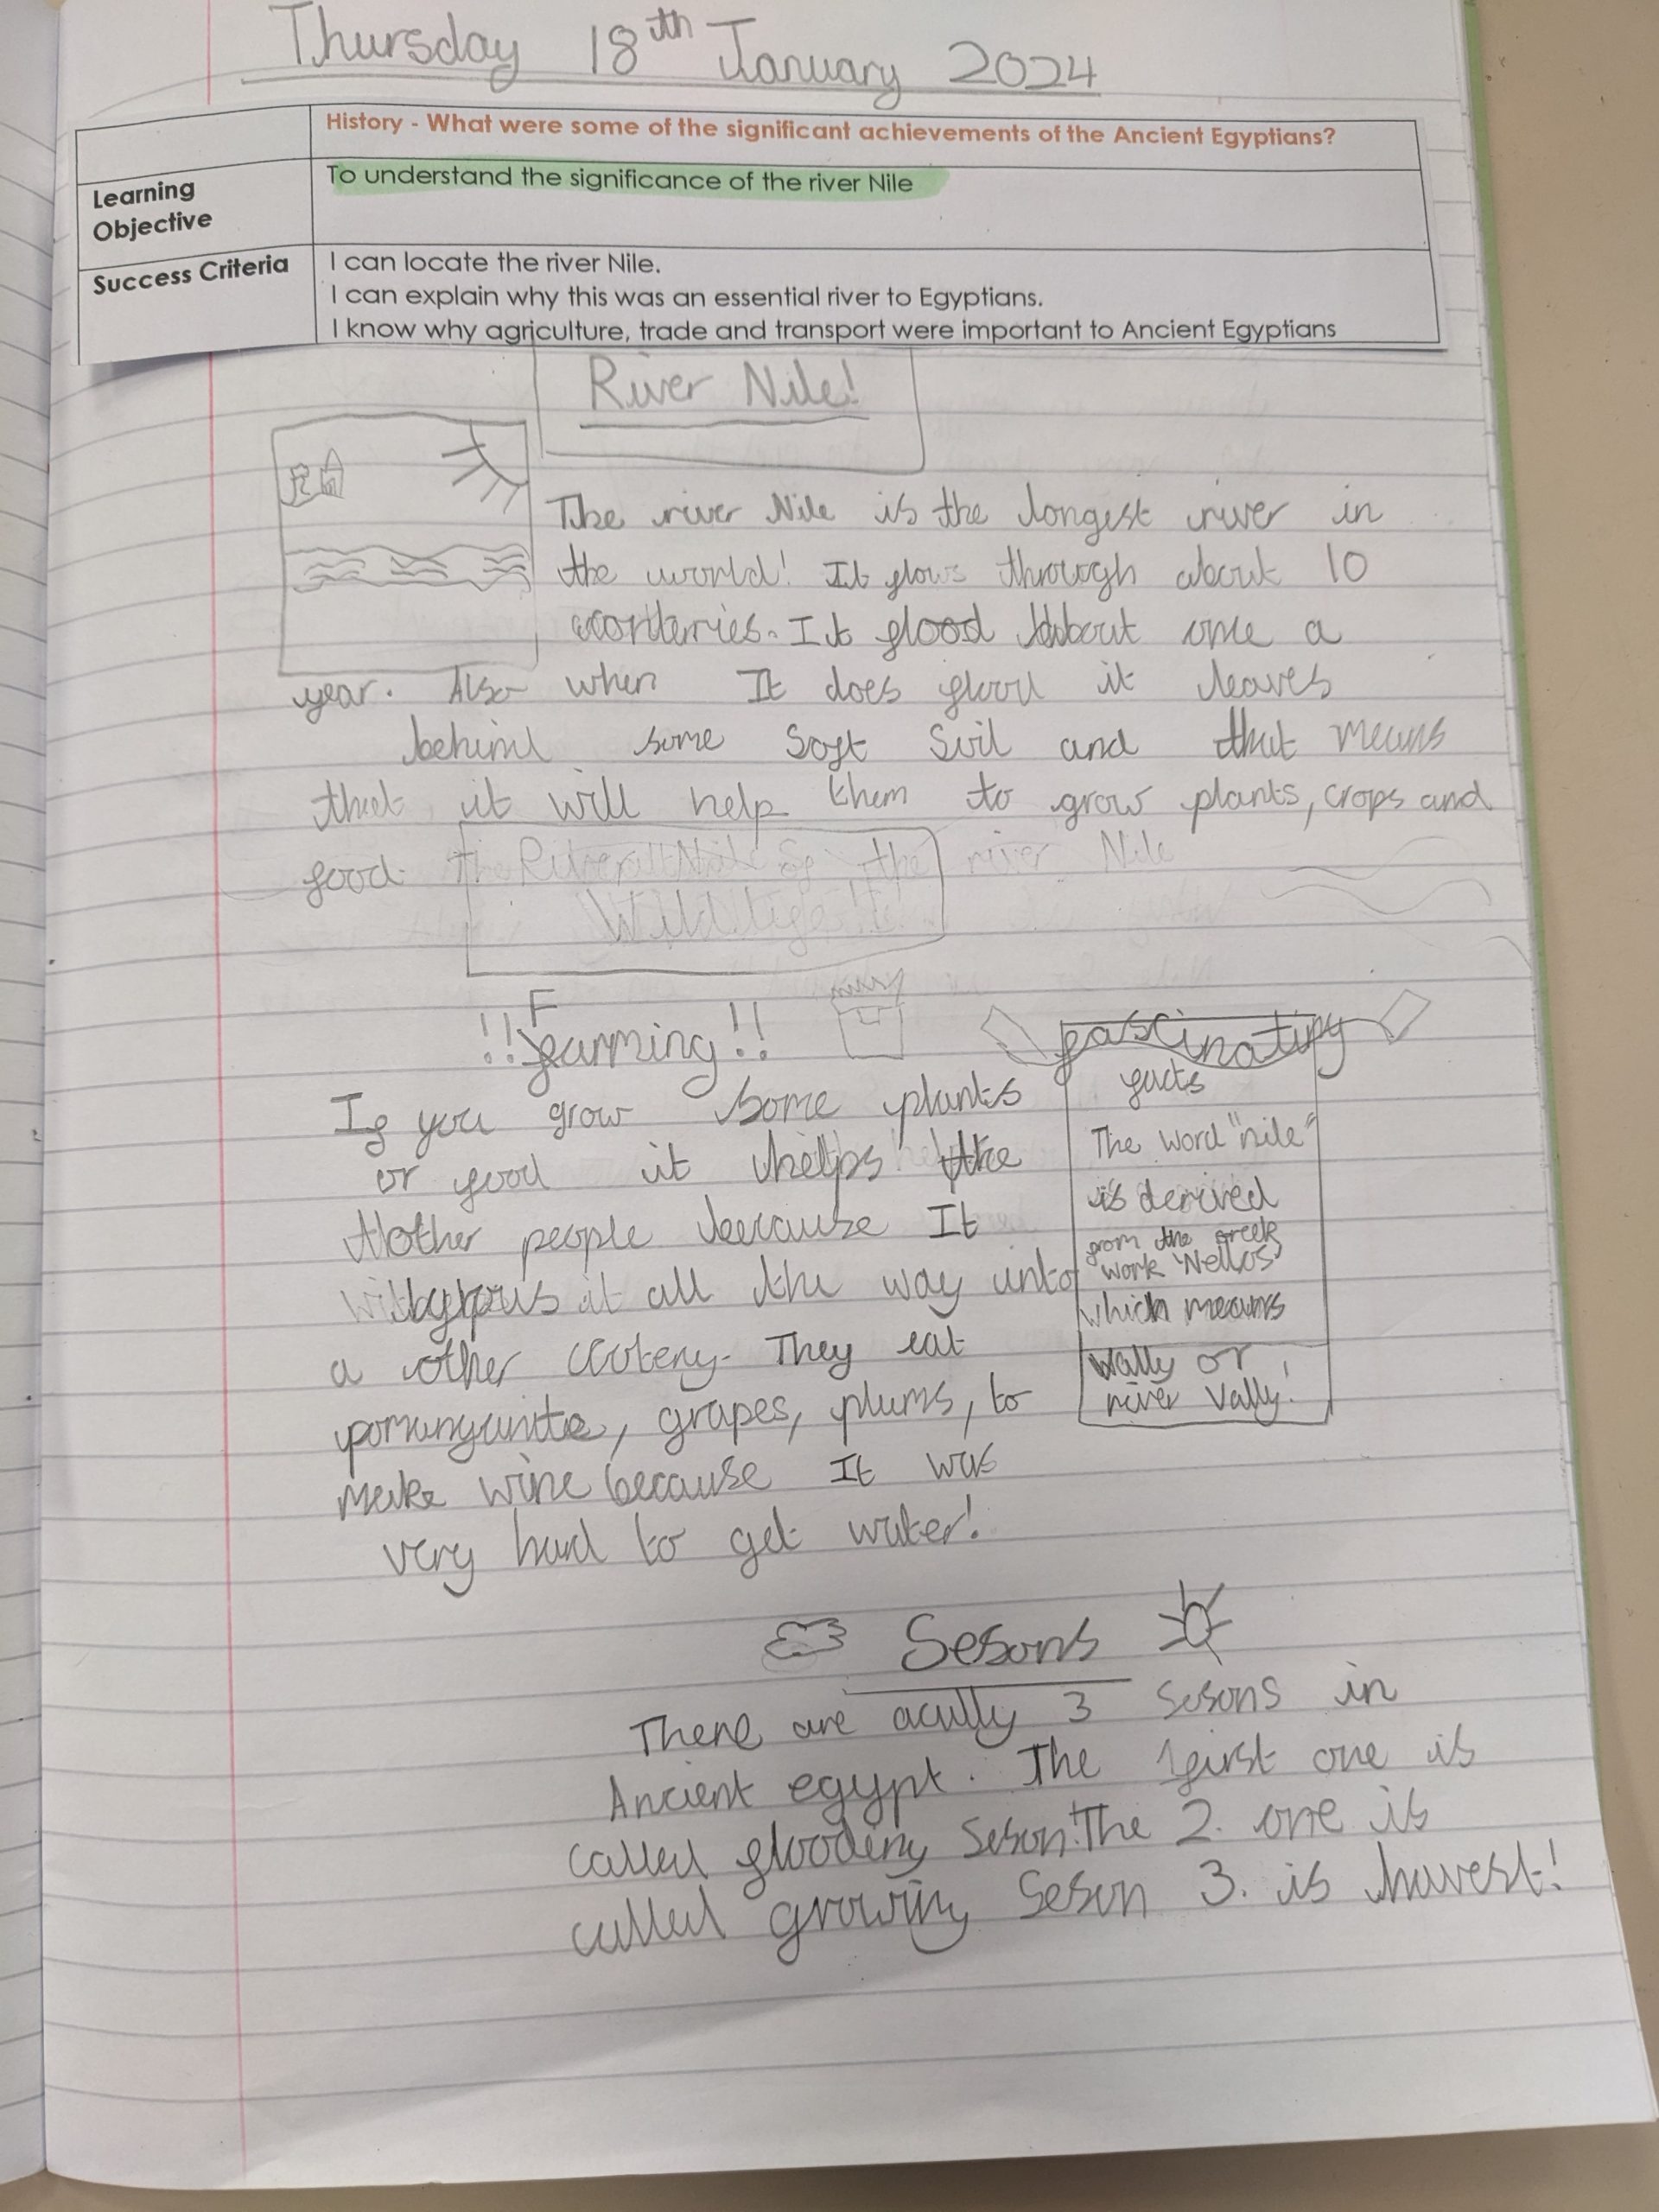 Thursday 18th January 2024
History - What were some of the significant achievements of the Ancient Egyptians?
Learning Objective
To understand the significance of the river Nile
Success Criteria
I can locate the river Nile.
I can explain why this was an essential river to Egyptians.
I know why agriculture, trade and transport were important to Ancient Egyptians
River Nile!
The river Nile is the longest river in
the world! It flows through about 10
conteries. It flood about one a
year. Also when It does flood it leaves
behind some soft soil and that means
that it will help them to grow plants, crops and
food.
the river Nile
Wildlife
!!Farming!!
If you grow some plants
or food it helps the
other people because It
it all the way unto
a other coutery. They eat
pomungunite, grapes, plums, to
make wine because It was
very hard to get water!
fascinating
facts
The word "nile"
is derived
from the greek
work 'Neilos'
which means
vally or
river Vally!
Sesons
There are acully 3 sesons in
Ancient egypt. The first one is
called flooding seson. The 2. one is
called growing Seson 3. is havest!